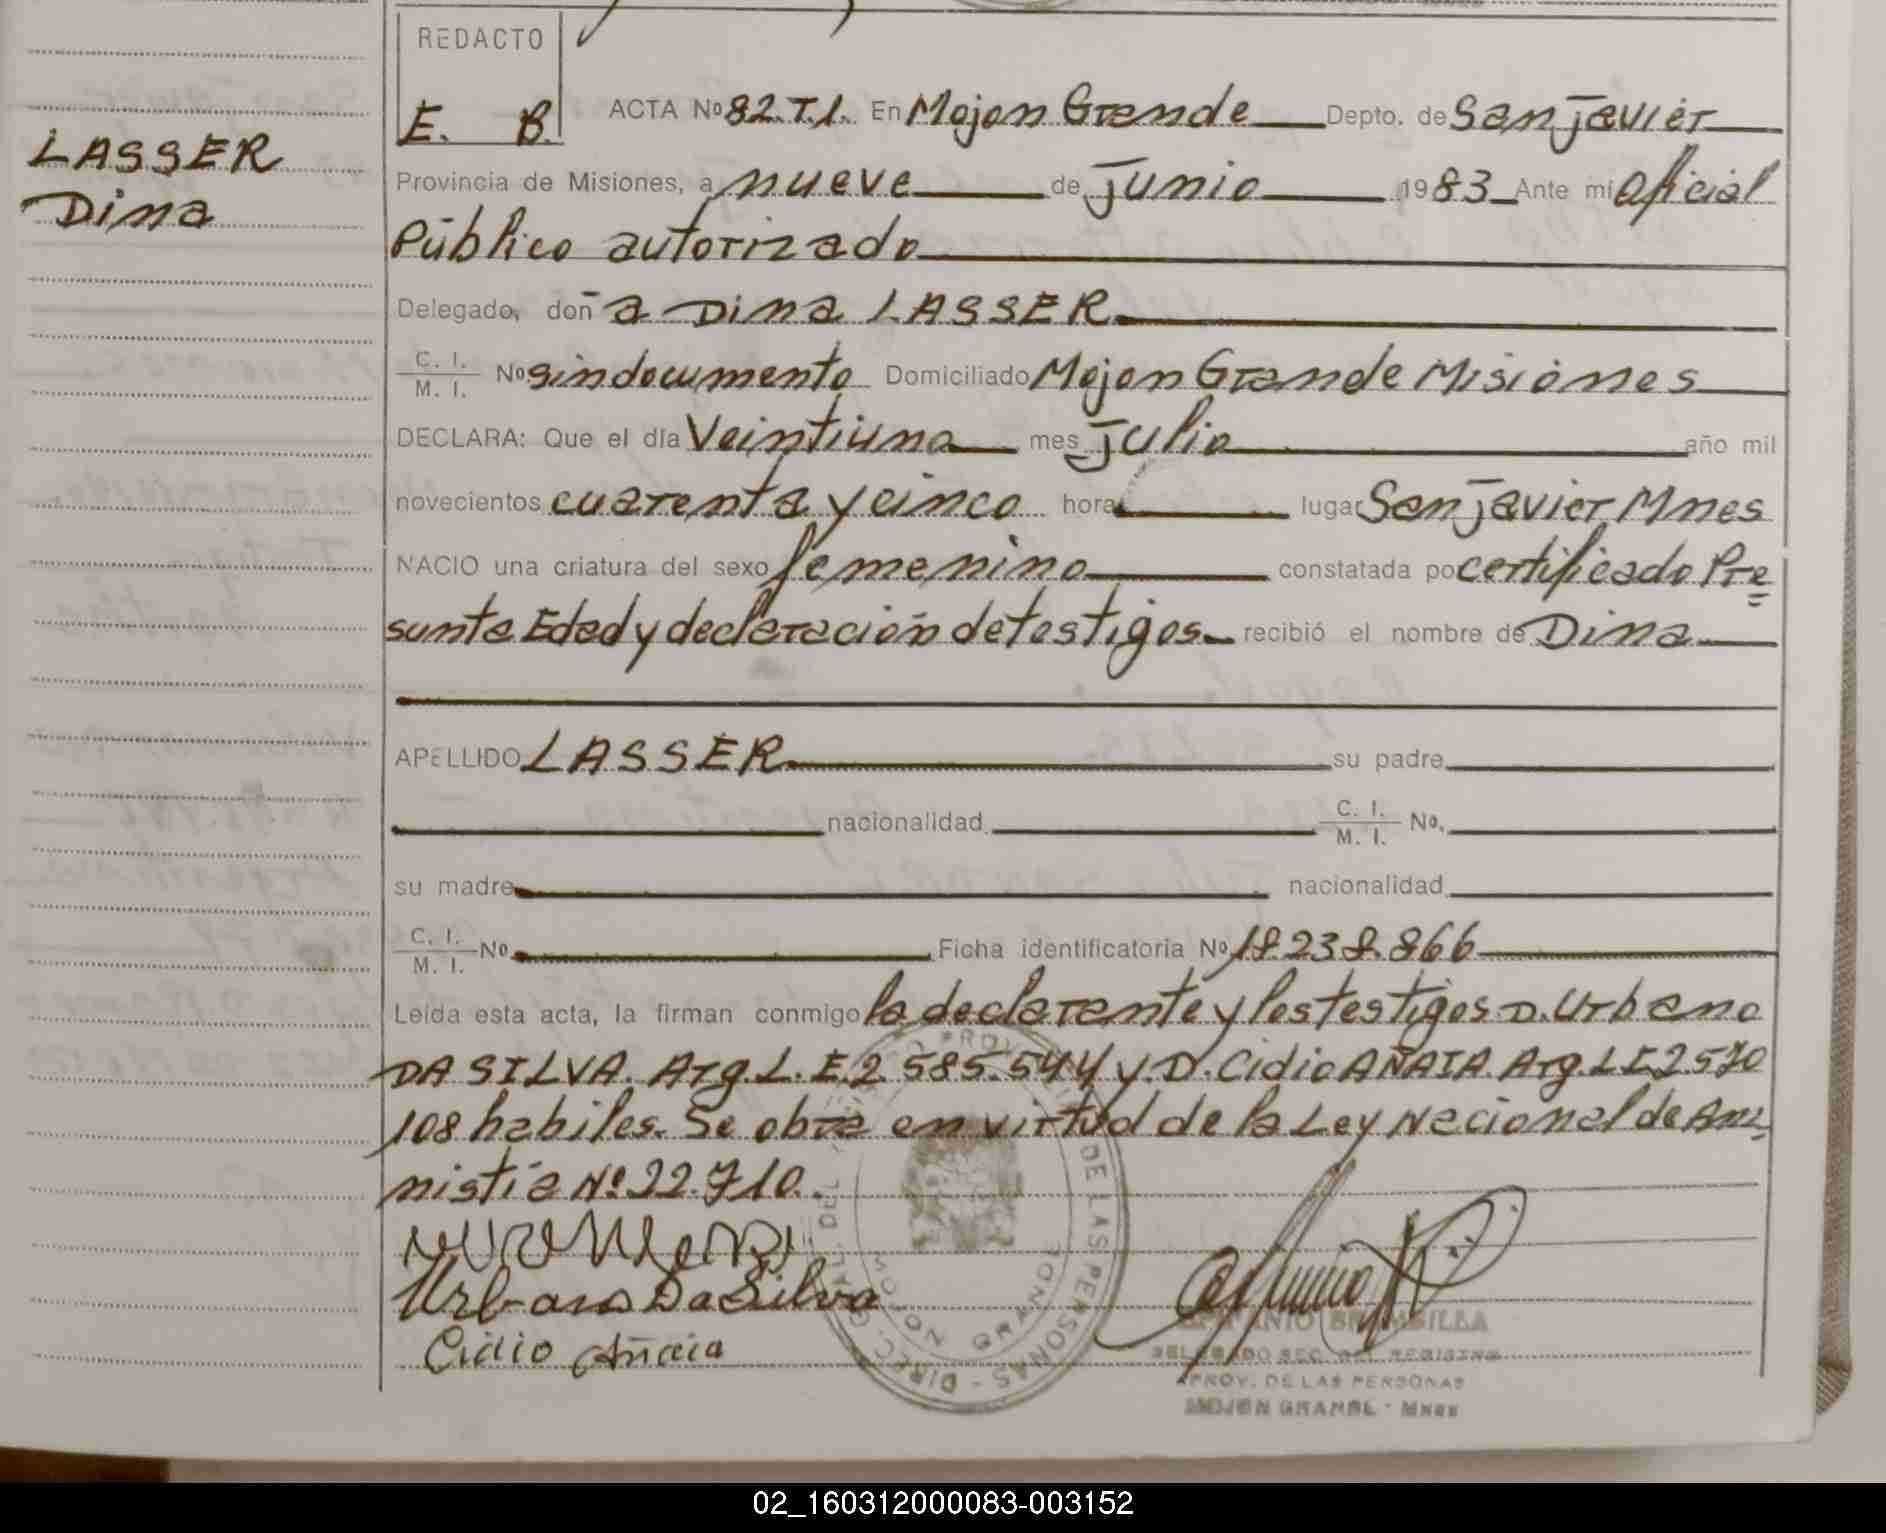 REDACTO
E. B.
ACTA Nº 82.T.1. En Mojon Grande Depto. de San Javier
LASSER
Dina
Provincia de Misiones, a nueve de junio 1983 Ante mí oficial
Público autorizado
Delegado, doñ a Dina LASSER
C. I. / M. I. Nº sin documento Domiciliado Mojon Grande Misiones
DECLARA: Que el día Veintiuno mes julio año mil
novecientos cuarenta y cinco hora lugar San Javier Mnes
NACIO una criatura del sexo femenino constatada po certificado Pre=
sunta Edad y declaración de testigos recibió el nombre de Dina
APELLIDO LASSER su padre
nacionalidad C. I. / M. I. Nº.
su madre nacionalidad
C. I. / M. I. Nº Ficha identificatoria Nº 18.238.866
Leída esta acta, la firman conmigo la declarante y los testigos D. Urbano
DA SILVA. Arg. L. E. 2.585.544 y D. Cidio AÑAIA. Arg. L E 2 570
108 habiles. Se obra en virtud de la Ley Nacional de Am=
nistía Nº 22.710.
Urbano Da Silva
Cidio Añaia
DE LAS PERSONAS - DIREC. GRAL. DEL
MOJON GRANDE
DELEGADO SEC. DEL REGISTRO
PROV. DE LAS PERSONAS
MOJON GRANDE - MNES
02_160312000083-003152